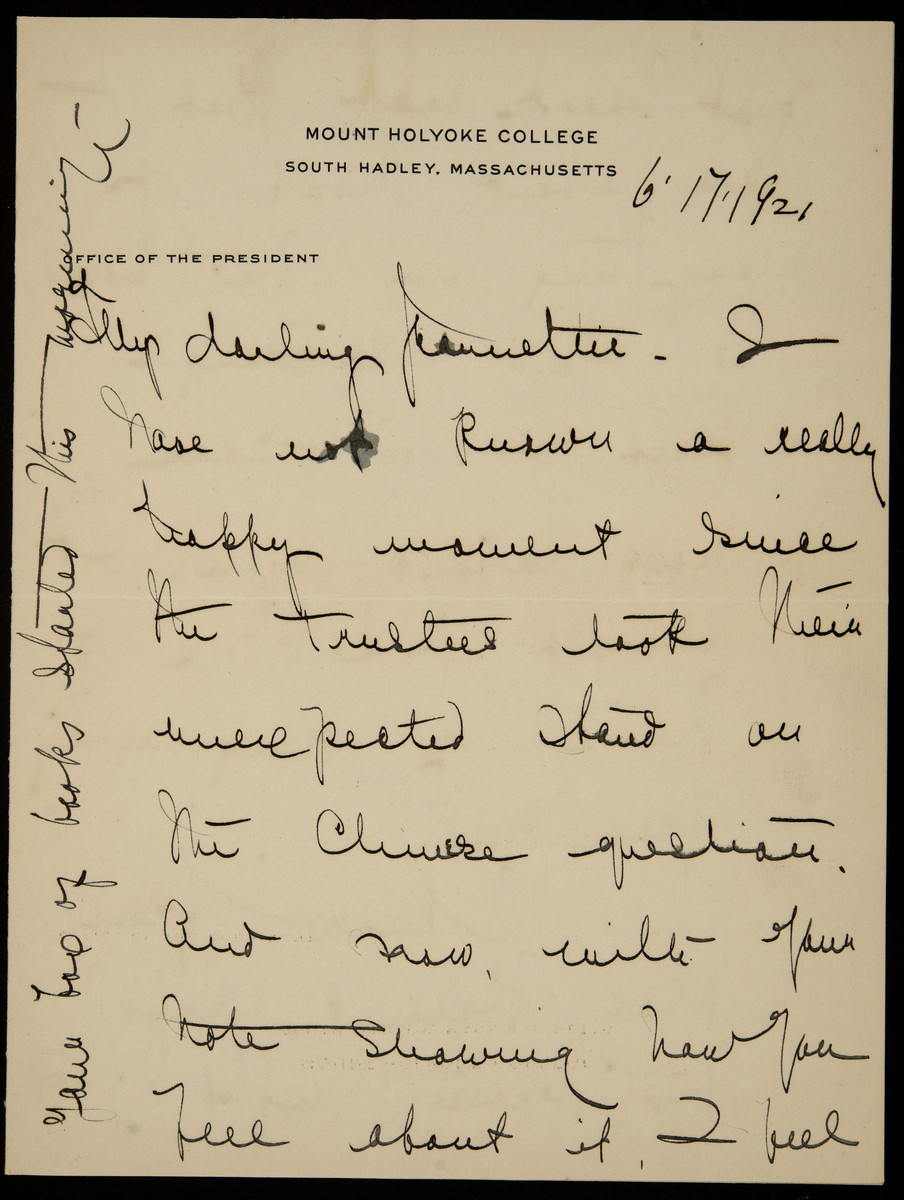 MOUNT HOLYOKE COLLEGE
SOUTH HADLEY, MASSACHUSETTS
6'17'1921
OFFICE OF THE PRESIDENT
My darling Jeannette - I
have not known a really
happy moment since
the trustees took their
unexpected stand on
the Chinese question.
And now, with your
note showing how you
feel about it, I feel
Your box of books started this morning -